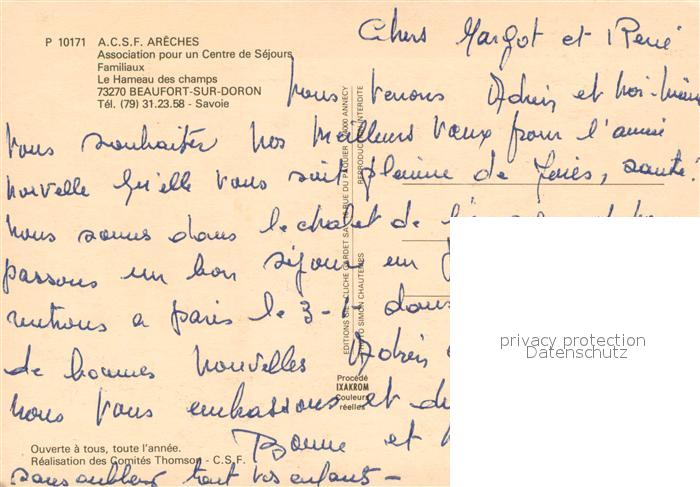 P 10171 A.C.S.F. ARÊCHES
Association pour un Centre de Séjours
Familiaux
Le Hameau des champs
73270 BEAUFORT-SUR-DORON
Tél. (79) 31.23.58 - Savoie
Chers Margot et René
Nous venons et moi-même
vous souhaiter nos meilleurs vœux pour l'année
nouvelle qu'elle vous soit pleine de joies, santé.
nous sommes dans le chalet de
passons un bon séjour en
rentrons a paris le 3-1- dans
de bonnes nouvelles
nous vous embrassons et
Bonne et
sans oublier tout vos enfants-
EDITIONS GIL - CLICHE GARDET RUE DU PAQUIER 74000 ANNECY
REPRODUCTION INTERDITE
PHOTO SIMON CHAUTEMPS
Procédé
IXAKROM
Couleurs
réelles
Ouverte à tous, toute l'année.
Réalisation des Comités Thomson - C.S.F.
privacy protection
Datenschutz